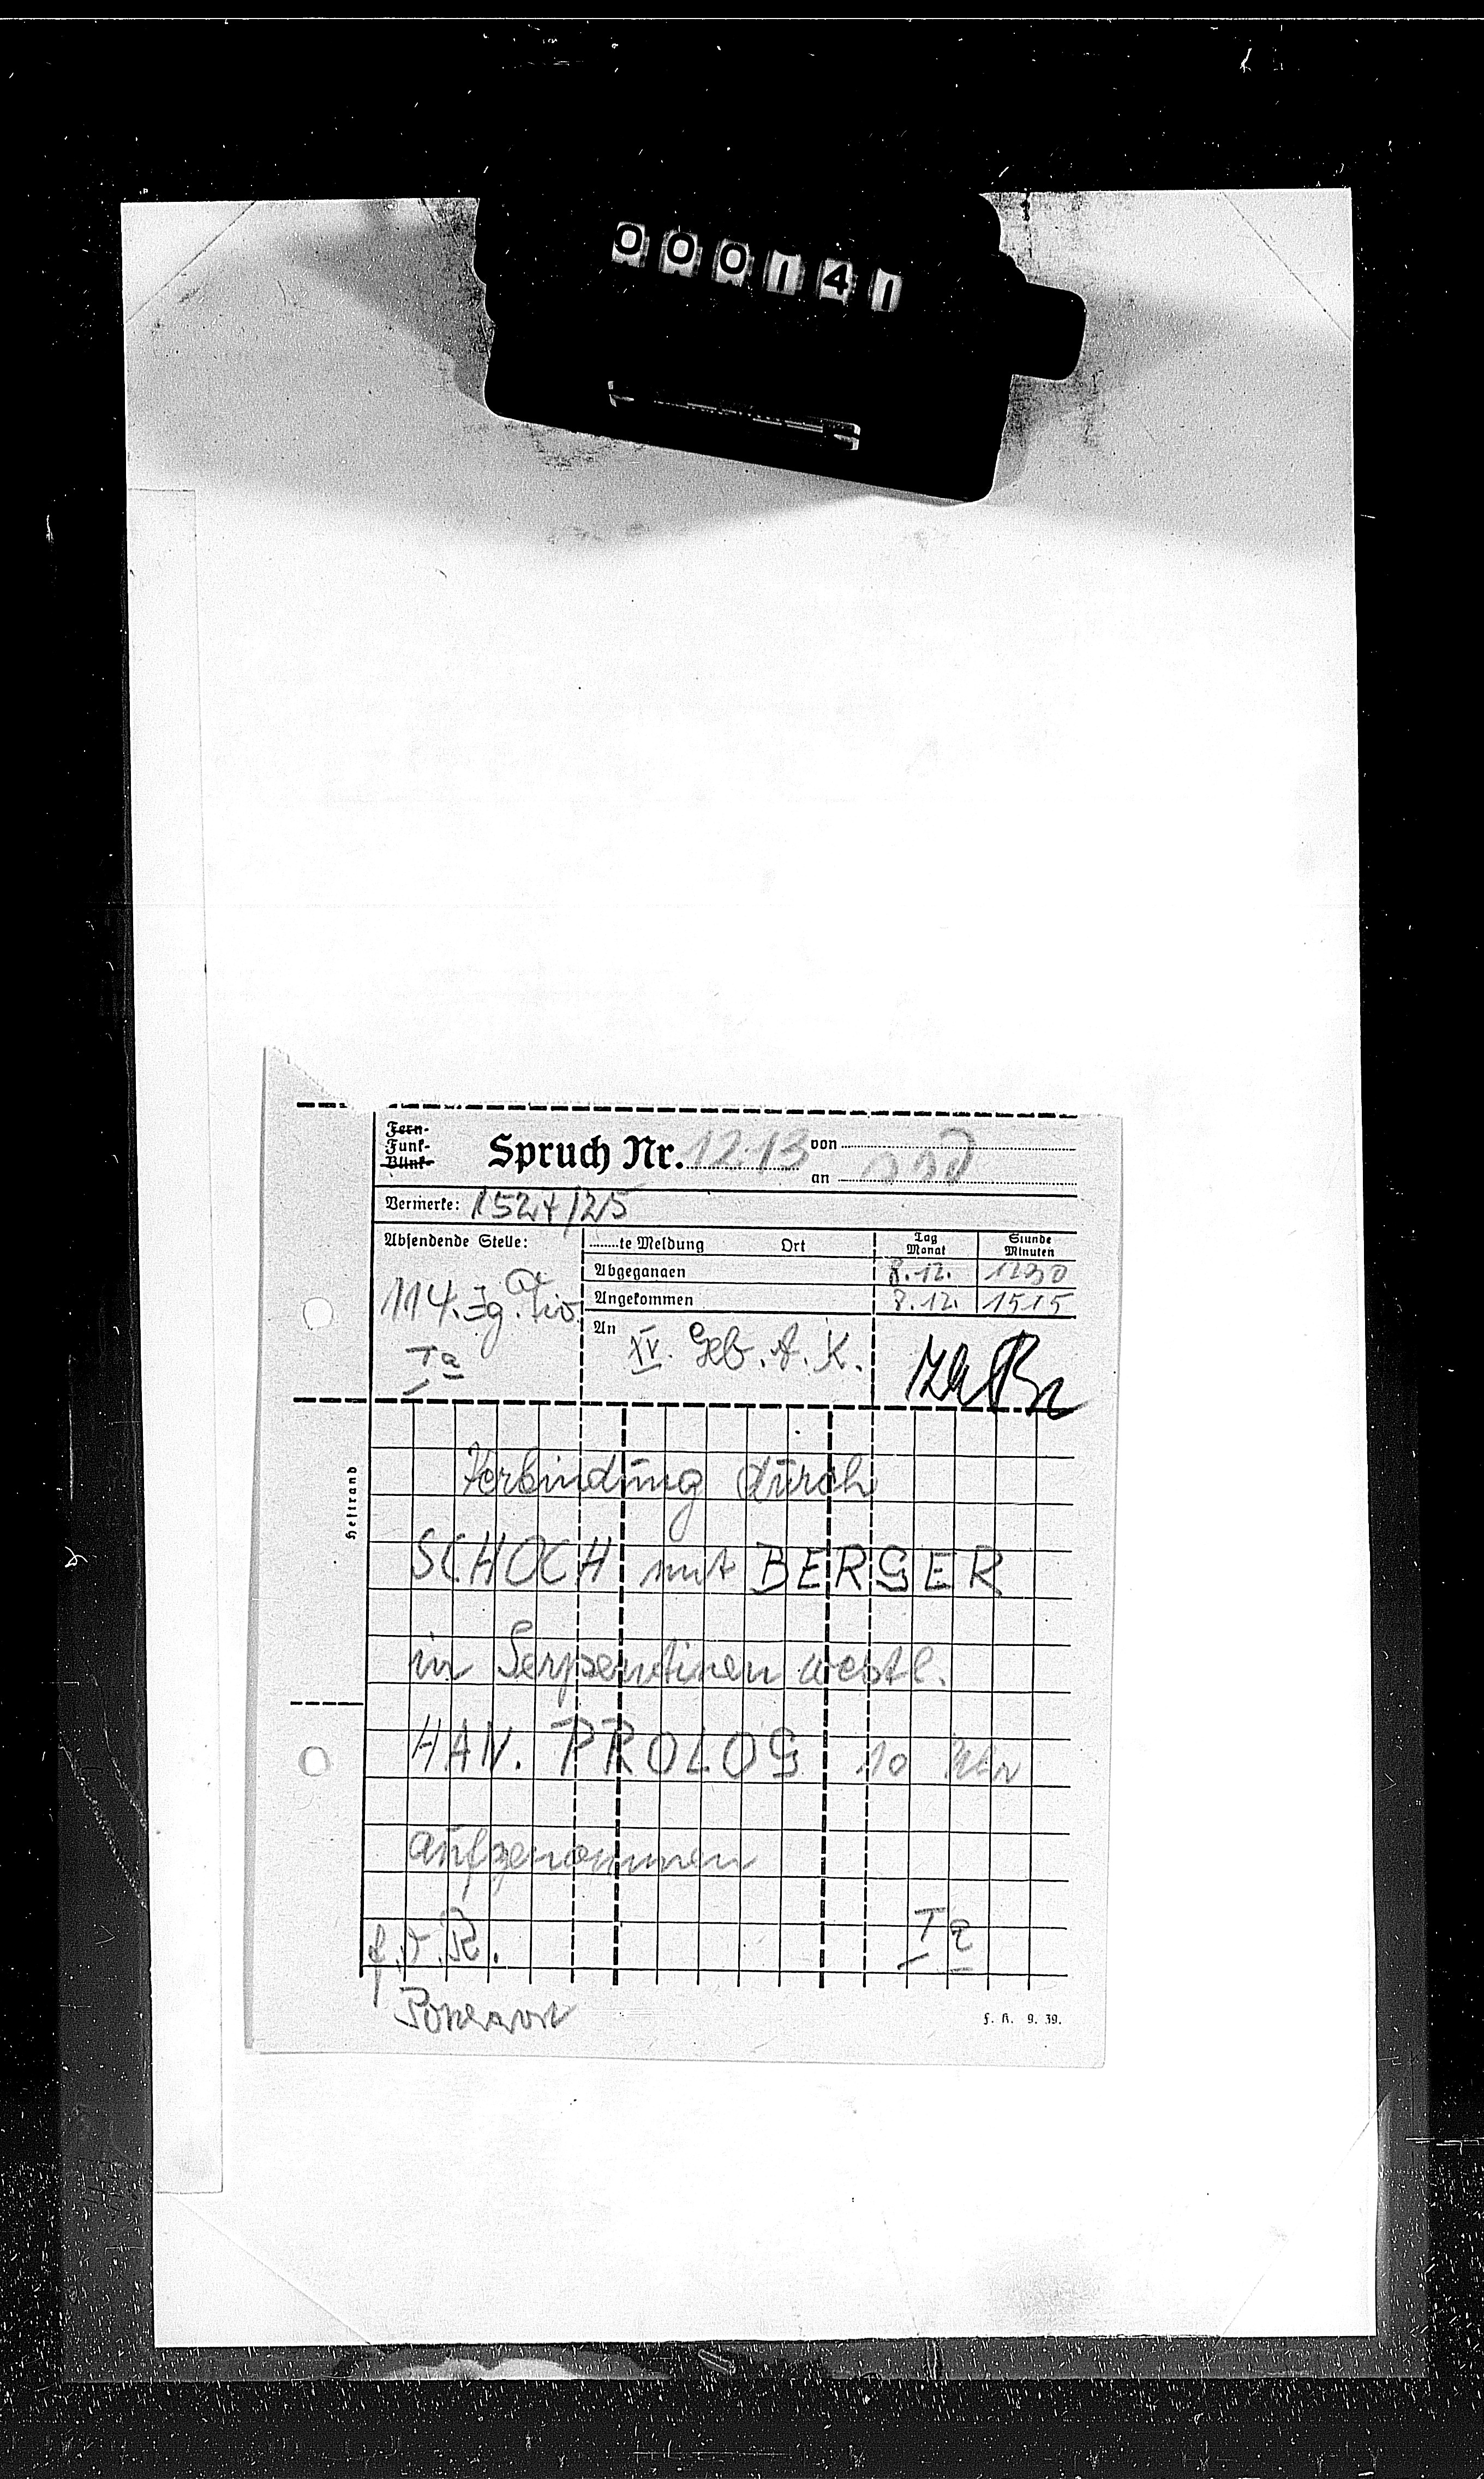 000141
Fern-
Funk-
Blink-
Spruch Nr. 1213 von
an
Vermerke: 1524/25
Absendende Stelle:
te Meldung Ort
Tag
Monat
Stunde
Minuten
Abgegangen 8.12. 1230
Angekommen 8.12. 1515
114. Jg. Div.
Ia
An XV. Geb. A. K.
Heftrand
Verbindung durch
SCHOCH mit BERGER
in Serpentinen westl.
HAN. PROLOG 10 Uhr
aufgenommen
Ia
f.d.R.
F. K. 9. 39.